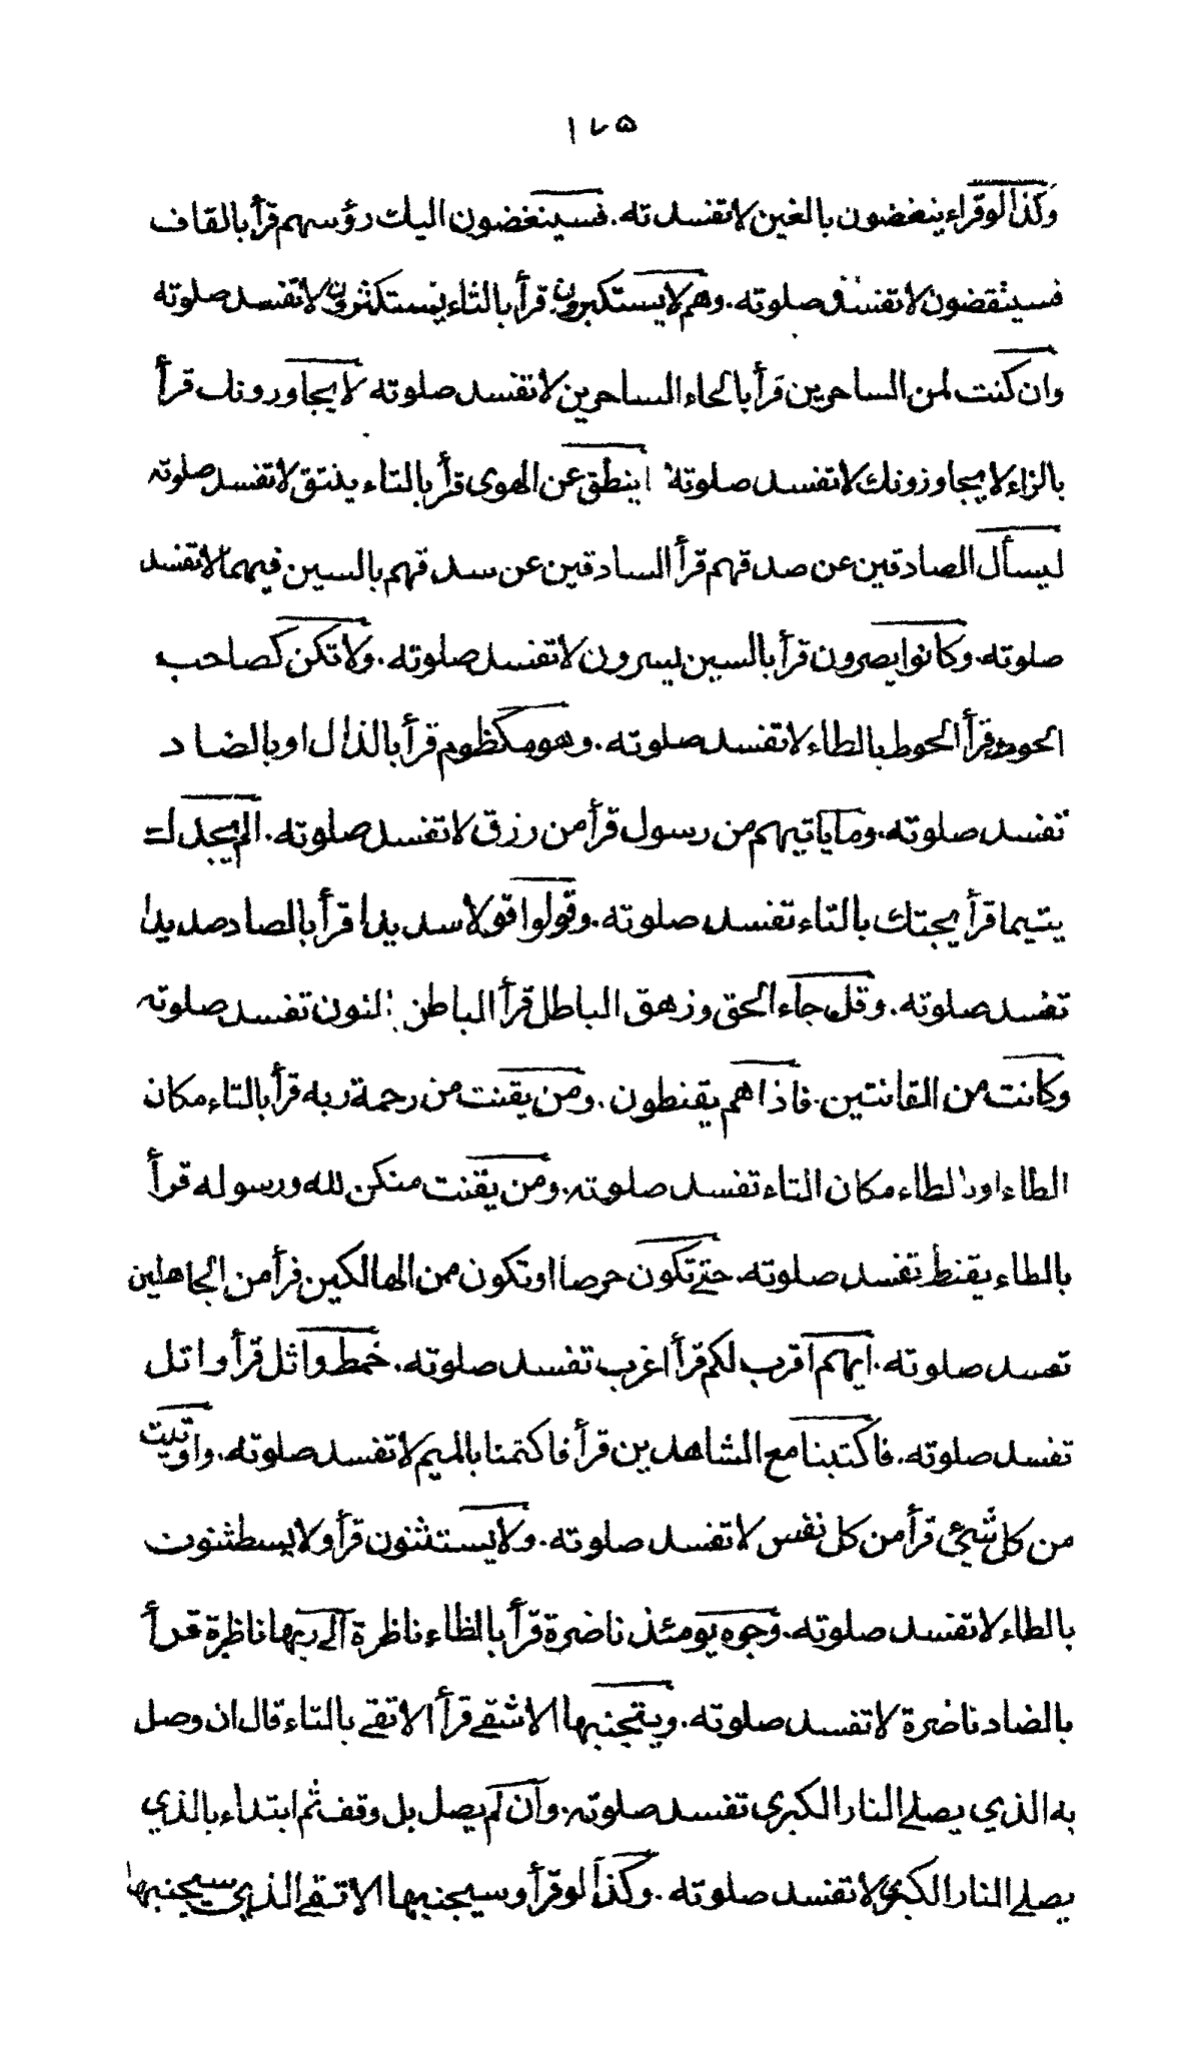 ١٧٥
وكذا لو قراء ينغضون بالغين لا تفسد ته. فسينغضون اليك رؤسهم قرأ بالقاف
فسينقضون لا تفسد صلوته. وهم لا يستكبرون قرأ بالثاء يستكثرون لا تفسد صلوته
وان كنت لمن الساخرين قرأ بالحاء الساحرين لا تفسد صلوته لا يجاورونك قرأ
بالزاء لا يجاوزونك لا تفسد صلوته ينطق عن الهوى قرأ بالتاء ينتق لا تفسد صلوته
ليسأل الصادقين عن صدقهم قرأ السادقين عن سدقهم بالسين فيهما لا تفسد
صلوته. وكانوا يصرون قرأ بالسين يسرون لا تفسد صلوته. ولا تكن كصاحب
الحوت قرأ الحوط بالطاء لا تفسد صلوته. وهو مكظوم قرأ بالذال او بالضاد
تفسد صلوته. وما ياتيهم من رسول قرأ من رزق لا تفسد صلوته. الم يجدك
يتيما قرأ يجتك بالتاء تفسد صلوته. وقولوا قولا سديدا قرأ بالصاد صديدا
تفسد صلوته. وقل جاء الحق وزهق الباطل قرأ الباطن بالنون تفسد صلوته
وكانت من القانتين. فاذا هم يقنطون. ومن يقنت من رحمة ربه قرأ بالتاء مكان
الطاء او الطاء مكان التاء تفسد صلوته. ومن يقنت منكن لله ورسوله قرأ
بالطاء يقنط تفسد صلوته. حتى تكون حرصا او تكون من الهالكين قرأ من الجاهلين
تفسد صلوته. ايهم اقرب لكم قرأ اغرب تفسد صلوته. خمط واثل قرأ واتل
تفسد صلوته. فاكتبنا مع الشاهدين قرأ فاكتمنا بالميم لا تفسد صلوته. واوتيت
من كل شيء قرأ من كل نفس لا تفسد صلوته. ولا يستثنون قرأ ولا يسطثنون
بالطاء لا تفسد صلوته. وجوه يومئذ ناضرة قرأ بالظاء ناظرة الى ربها ناظرة قرأ
بالضاد ناضرة لا تفسد صلوته. ويتجنبها الاشقى قرأ الاتقى بالتاء قال ان وصل
به الذي يصلى النار الكبرى تفسد صلوته. وان لم يصل بل وقف ثم ابتداء بالذي
يصلى النار الكبرى لا تفسد صلوته. وكذا لو قرأ وسيجنبها الاتقى الذي سيجنبها